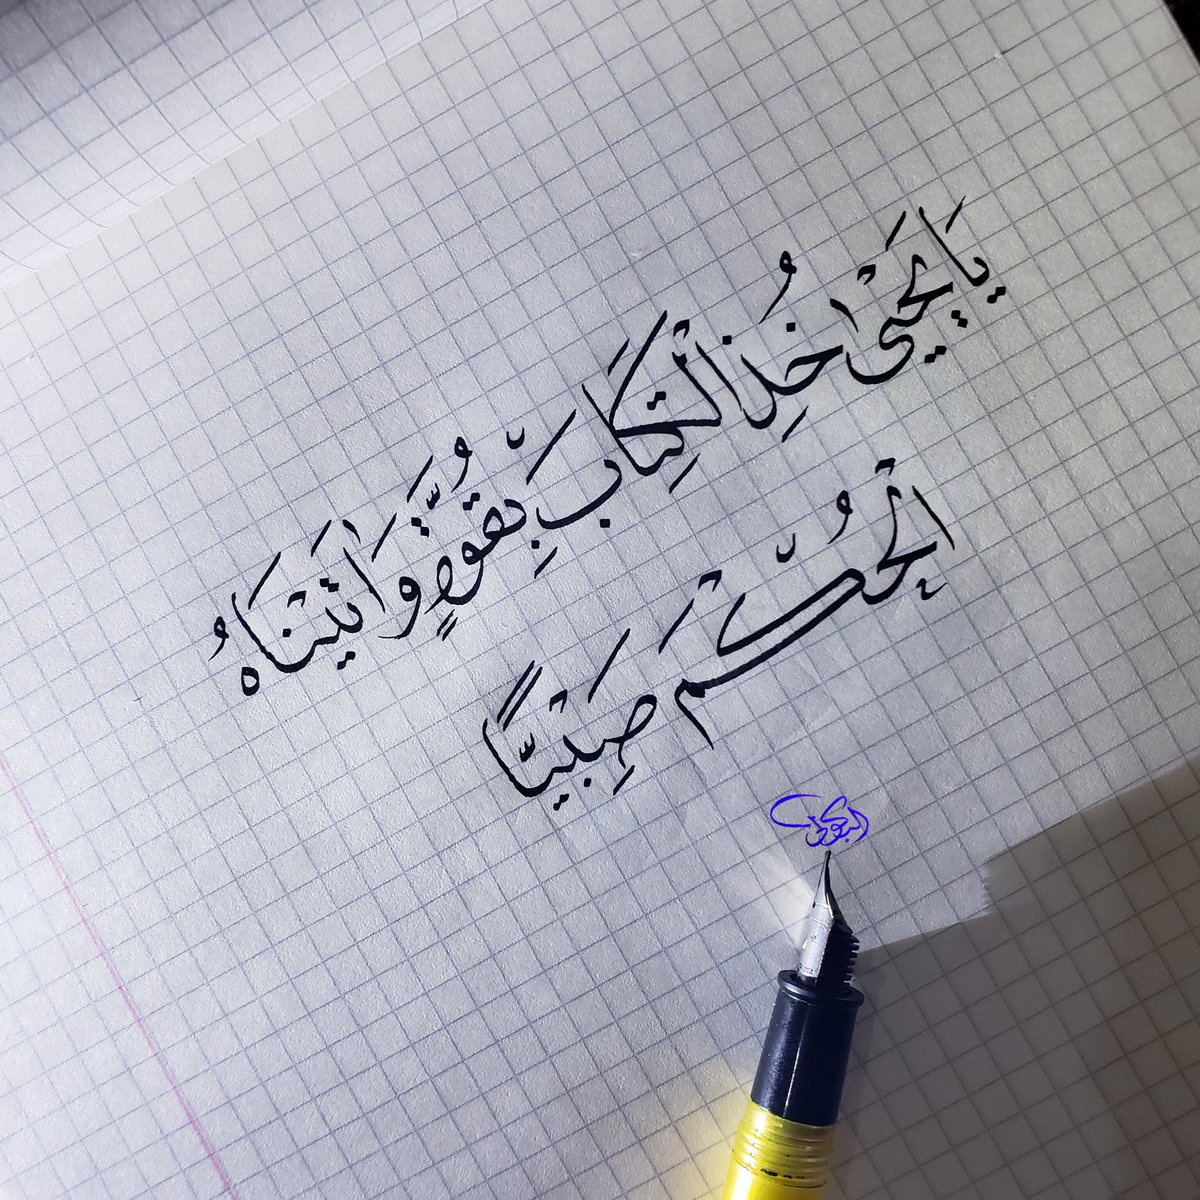 يَا يَحْيَى خُذِ الْكِتَابَ بِقُوَّةٍ وَاٰتَيْنَاهُ
الْحُكْمَ صَبِيًّا